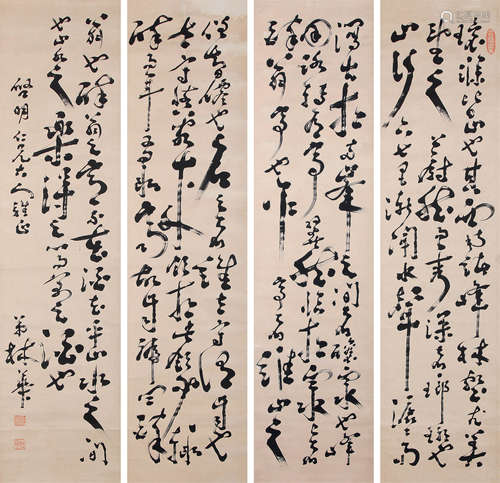 環滁皆山也其西南諸峰林壑尤美
望之蔚然而深秀者瑯琊也
山行六七里漸聞水聲潺潺而
瀉出於兩峯之間者釀泉也峰
回路轉有亭翼然臨於泉上者
醉翁亭也作亭者誰山之
僧智僊也名之者誰太守自謂也
太守與客來飲於此飲少輒
醉而年又最高故自號曰醉
翁也醉翁之意不在酒在乎山水之間
也山水之樂得之心而寓之酒也
啓明仁兄大人雅正
弟林華